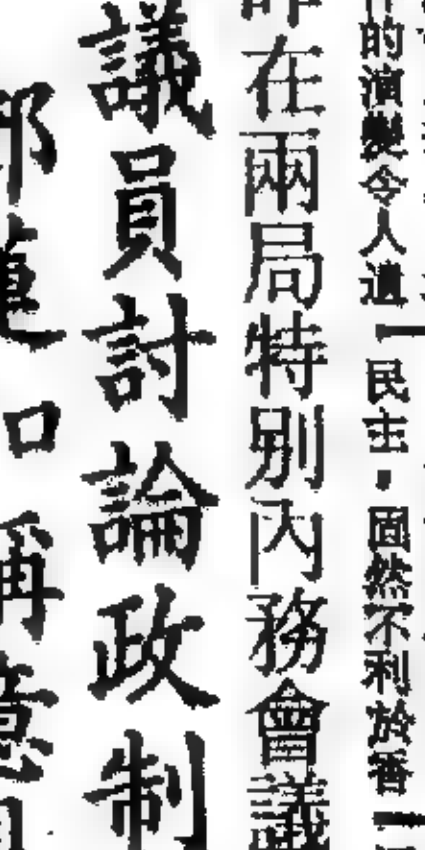 的演變令人遺
民主，固然不利於香
昨在兩局特別內務會議
議員討論政制
部連口稱意